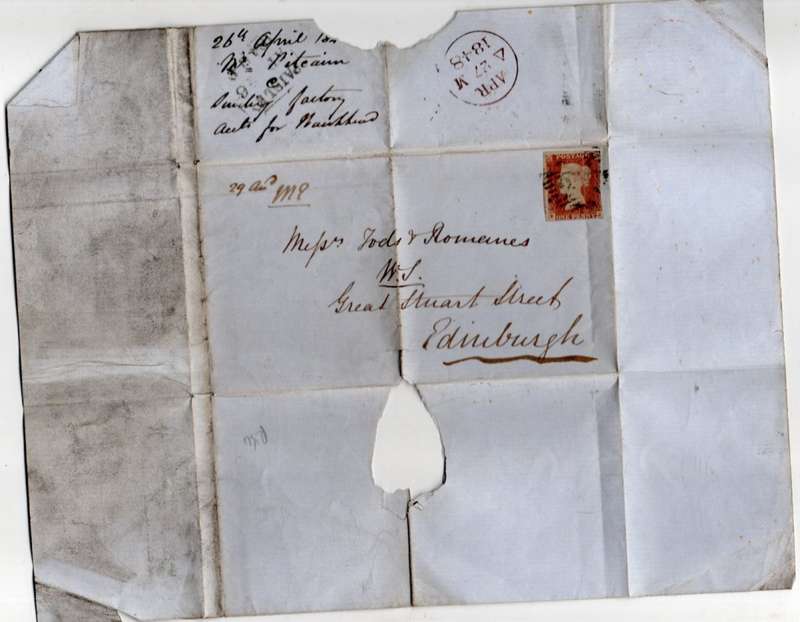 26th April 184
Mr Pitcairn
factory
accts for Bankhead
PAISLEY
APR
27
M
1848
29 MP
POSTAGE
ONE PENNY
Messrs Tods & Romanes
W.S.
Great Stuart Street
Edinburgh